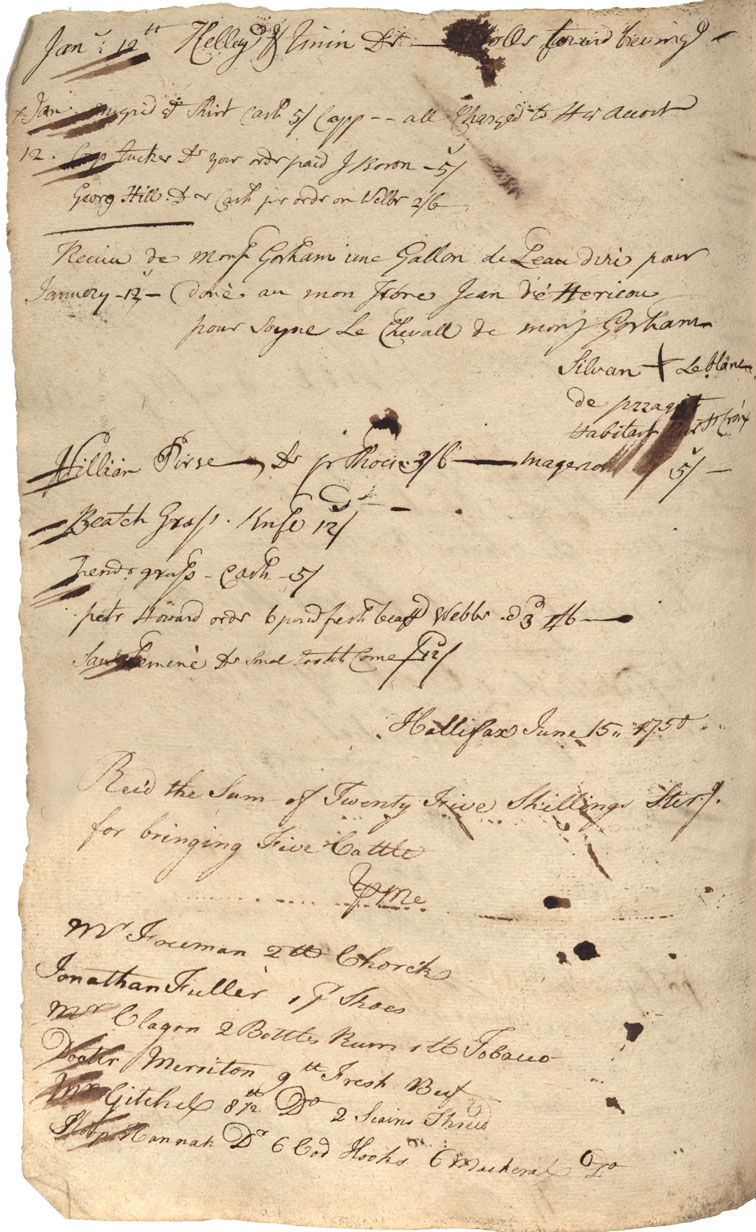 Jany: 12th Kelley & Dr forward being
Jan: Shirt Cash 5/ Capp -- all Charged to His Accott
12. Capt Tucker Dr your ordr paid J 5/
Georg Hill. Dr Cash pr ordr on Webbr 2/6
Reciu de monsr Gorham une Gallon de Leau divi pour
January -12- Doné au mon frere Jean
pour soyne Le Chevall de monsr Gorham
Silvan + Le Blanc
de
Habitant St Croix
William Pirse Dr pr Shoes 3/6 — 5/ —
Beatch Grass. Knife 12/
grass - Cash - 5/
petr Howard ordr 6 pound fresh beaff Webbr
Dr Smal tooth Come 12/
Hallifax June 15" 1750
Recd the Sum of Twenty Five Shillings Sterg.
for bringing Five Cattle
P me
Mr Freeman 2 lb Chorck
Jonathan Fuller 1 pr Shoes
Mr Clagon 2 Bottles Rum 1 lb Tobacco
Docttr Merriton 9 lb Fresh Beef
Mr Gitchel 8 1/2 lb Do 2 Scains Thred
Sloop Hannah Dr 6 Cod Hooks 6 Mackeral Do